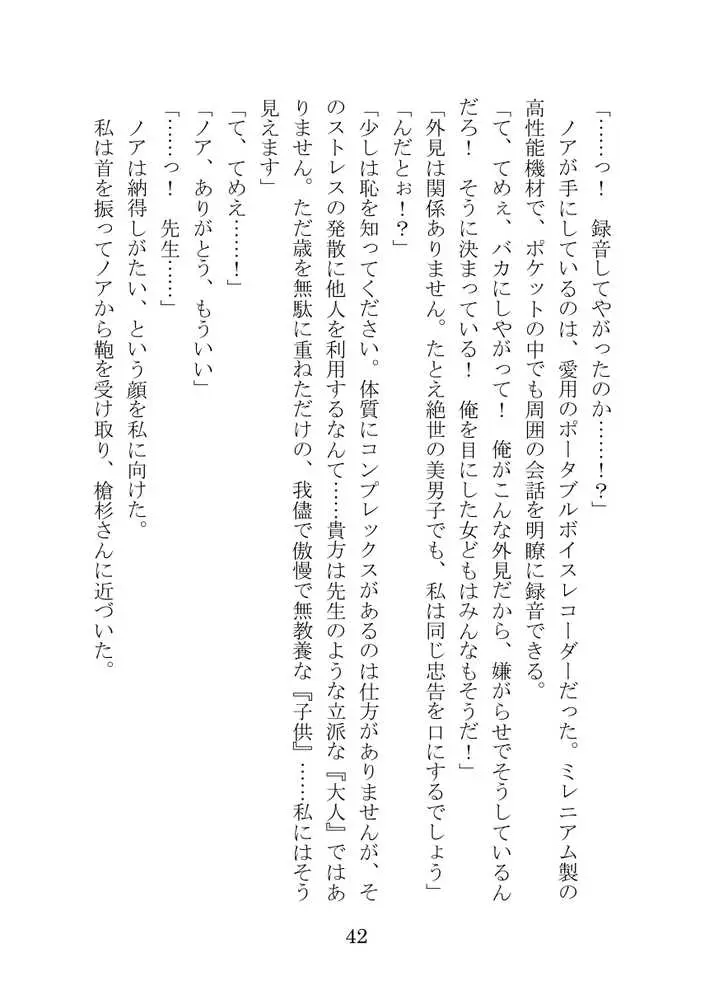 「……っ！　録音してやがったのか……！？」
　ノアが手にしているのは、愛用のポータブルボイスレコーダーだった。ミレニアム製の
高性能機材で、ポケットの中でも周囲の会話を明瞭に録音できる。
「て、てめぇ、バカにしやがって！　俺がこんな外見だから、嫌がらせでそうしているん
だろ！　そうに決まっている！　俺を目にした女どもはみんなもそうだ！」
「外見は関係ありません。たとえ絶世の美男子でも、私は同じ忠告を口にするでしょう」
「んだとぉ！？」
「少しは恥を知ってください。体質にコンプレックスがあるのは仕方がありませんが、そ
のストレスの発散に他人を利用するなんて……貴方は先生のような立派な『大人』ではあ
りません。ただ歳を無駄に重ねただけの、我儘で傲慢で無教養な『子供』……私にはそう
見えます」
「て、てめえ……！」
「ノア、ありがとう、もういい」
「……っ！　先生……」
　ノアは納得しがたい、という顔を私に向けた。
　私は首を振ってノアから鞄を受け取り、槍杉さんに近づいた。
42